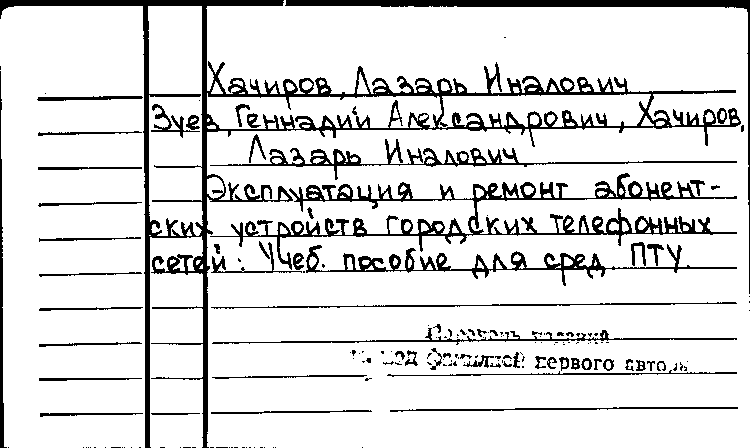 Хачиров, Лазарь Иналович
Зуев, Геннадий Александрович, Хачиров,
Лазарь Иналович.
Эксплуатация и ремонт абонент-
ских устройств городских телефонных
сетей: Учеб. пособие для сред. ПТУ.
Перечень изданий
под фамилией первого автора